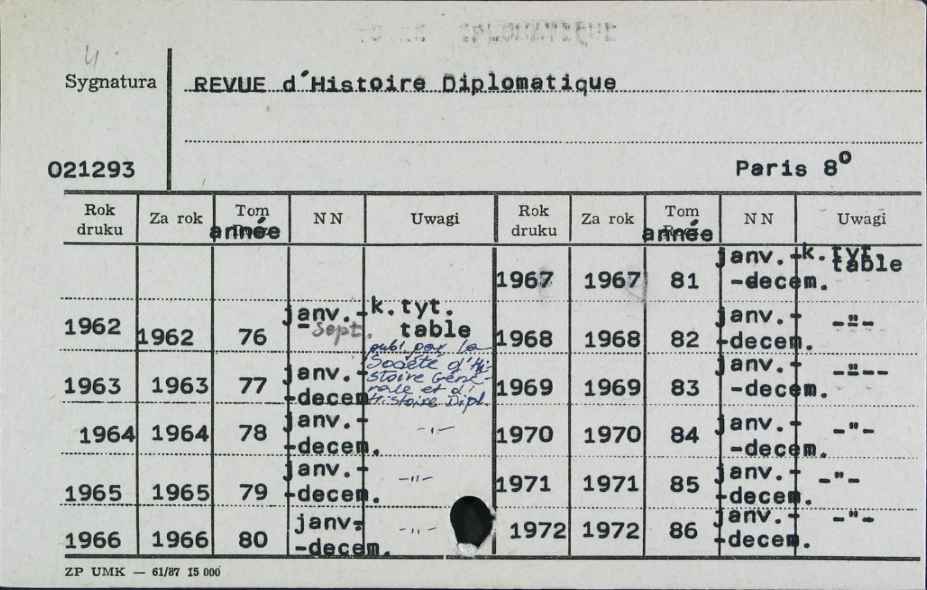 4
Sygnatura REVUE d'Histoire Diplomatique
021293 Paris 8°
Rok druku Za rok Tom année NN Uwagi Rok druku Za rok Tom année NN Uwagi
1967 1967 81 janv.--decem. k.tyt. table
1962 1962 76 janv.-Sept. k.tyt. table 1968 1968 82 janv.--decem. -"-
publ. par la
Société d'Hi-
stoire Géné-
rale et d'
Histoire Dipl.
1963 1963 77 janv.--decem 1969 1969 83 janv.--decem. -"--
1964 1964 78 janv.--decem. -"- 1970 1970 84 janv.--decem. -"-
1965 1965 79 janv.--decem. -"- 1971 1971 85 janv.--decem. -"-
1966 1966 80 janv.--decem. -"- 1972 1972 86 janv.--decem. -"-
ZP UMK — 61/87 15 000